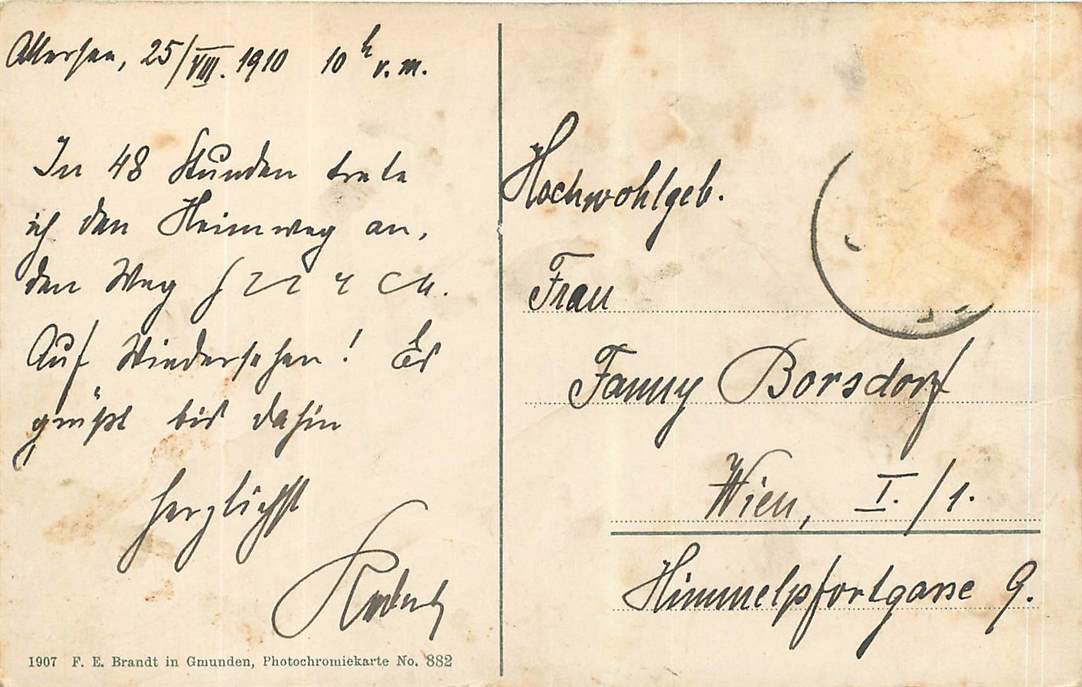 Attersee, 25/VIII. 1910 10h v. m.
In 48 Stunden trete
ich den Heimweg an,
den Weg
Auf Wiedersehen! Es
grüßt bis dahin
herzlichst
Hochwohlgeb.
Frau
Fanny Borsdorf
Wien, I./1.
Himmelpfortgasse 9.
1907 F. E. Brandt in Gmunden, Photochromiekarte No. 882